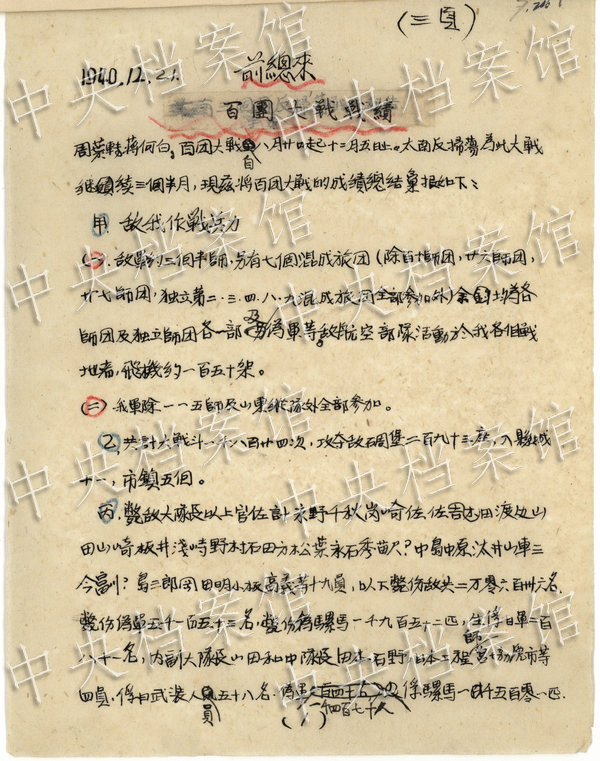 (三頁)
1940.12.21.
前總來
百團大戰戰績
周葉轉蔣何白。百团大戰自八月廿日起十二月五日止。太南反掃蕩為此大戰
继續三個半月，現兹將百团大戰的成績總結彙报如下：
甲、敌我作戰兵力
(一)、敌軍約三個半師，另有七個混成旅团(除百十師团，廿六師团，
廿七師团，独立第二·三·四·八·九混成旅团全部參加外)余均為各
師团及独立師团各一部及偽軍等。敌航空部隊活動於我各個戰
地者，飛機約一百五十架。
(二)、我軍除一一五師及山東縱隊外全部參加。
乙、共計大戰斗一千八百廿四次，攻夺敌碉堡二百九十三座，入縣城
十一，市鎮五個。
丙、斃敌大隊長以上官佐計永野千秋岗崎佐、佐吉田渡边山
田山崎板井淺崎野村石田方松葉永石秀苗尺？中島中原汰井山車三
今富州？島三郎岡田明小板高義等十九員，以下斃伤敌共二万零六百卅六名，
斃伤偽軍五千一百五十三名，斃伤騾馬一千九百五十二匹，生俘日軍二百
八十一名，内副大隊長山田和中隊長田本石野日本工程師宮
市等
四員，俘日武裝人員五十八名。偽軍
一千四百七十人
俘騾馬一千五百零一匹。
(1)
中央档案馆
中央档案馆
中央档案馆
中央档案馆
中央档案馆